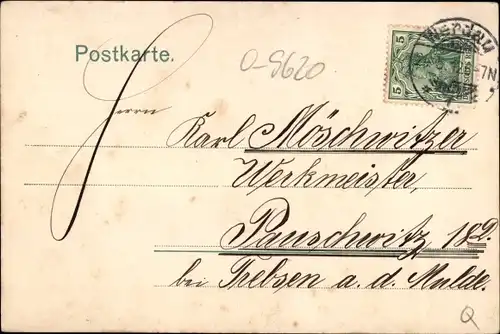 Postkarte.
O-9620
5 5
Werdau
-7N
Herrn
Karl Möschwitzer
Werkmeister,
Pauschwitz 18D.
bei Trebsen a. d. Mulde.
Q